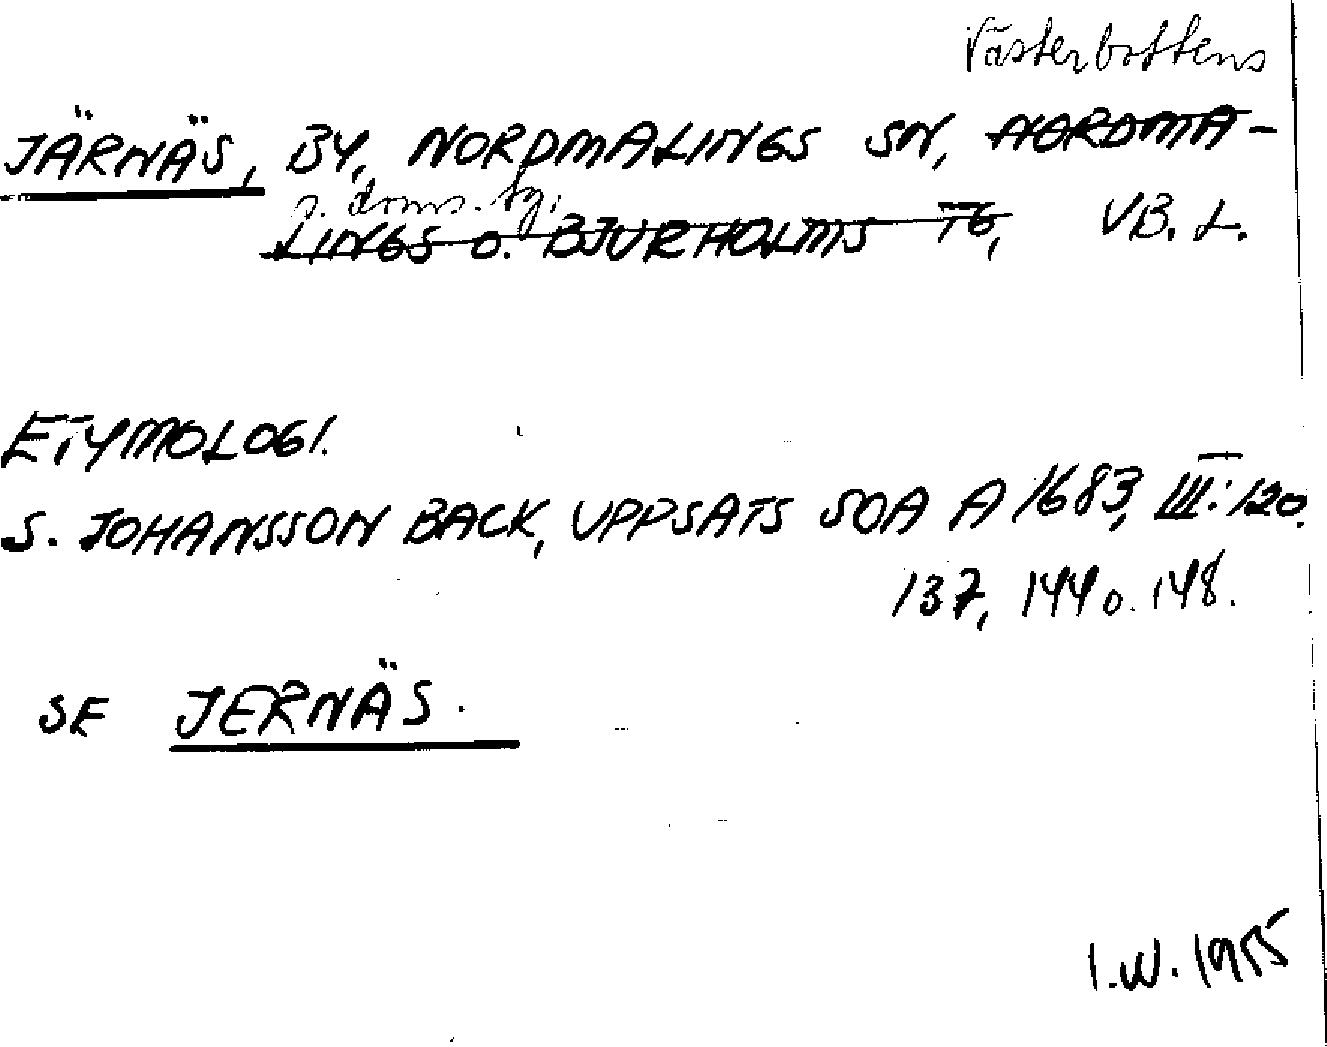 Västerbottens
JÄRNÄS, BY, NORDMALINGS SN, NORDMA-
s. doms. tg.
LINGS O. BJURHOLMS TG, VB. L.
ETYMOLOGI.
S. JOHANSSON BACK, UPPSATS SOA A 1683, III: 120.
137, 144 o. 148.
SE JERNÄS.
I.W. 1955